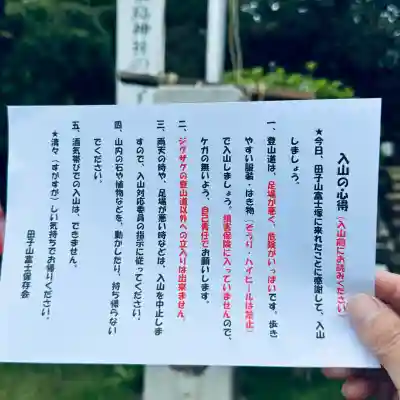 入山の心得(入山前にお読みください)
★今日、田子山富士塚に来れたことに感謝して、入山
しましょう。
一、登山道は、足場が悪く、危険がいっぱいです。歩き
やすい服装・はき物(ぞうり・ハイヒールは禁止)
で入山しましょう。損害保険に入っていませんので、
ケガの無いよう、自己責任でお願いします。
二、ジグザグの登山道以外への立入りは出来ません。
三、雨天の時や、足場が悪い時などは、入山を中止しま
すので、入山対応委員の指示に従ってください。
四、山内の石や植物などを、動かしたり、持ち帰らない
でください。
五、酒気帯びでの入山は、できません。
★清々(すがすが)しい気持ちでお帰りください。
田子山富士保存会
島神社の